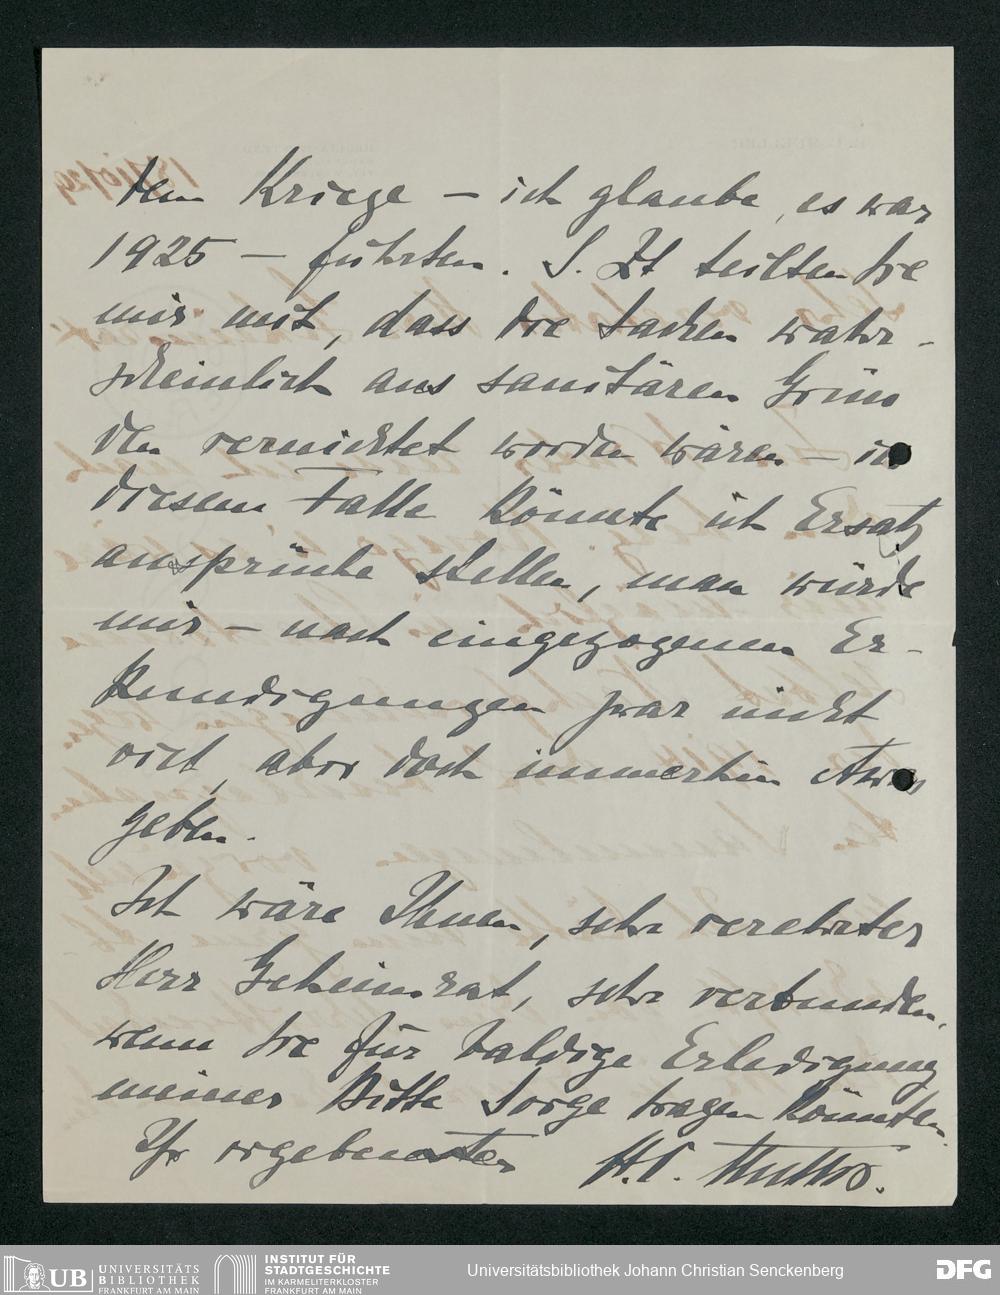 dem Kriege – ich glaube, es war
1925 – führten. S. Zt teilten Sie
mir mit, dass die Sachen wahr-
scheinlich aus sanitären Grün
den vernichtet worden wären – in
diesem Falle könnte ich Ersatz
ansprüche stellen, man würde
mir – nach eingezogenen Er-
kundigungen zwar nicht
viel, aber doch immerhin etwas
geben.
Ich wäre Ihnen, sehr verehrter
Herr Geheimrat, sehr verbunden,
wenn Sie für baldige Erledigung
meiner Bitte Sorge tragen könnten.
Ihr ergebenster H.C. Müller.
UB UNIVERSITÄTS
BIBLIOTHEK
FRANKFURT AM MAIN
INSTITUT FÜR
STADTGESCHICHTE
IM KARMELITERKLOSTER
FRANKFURT AM MAIN
Universitätsbibliothek Johann Christian Senckenberg
DFG